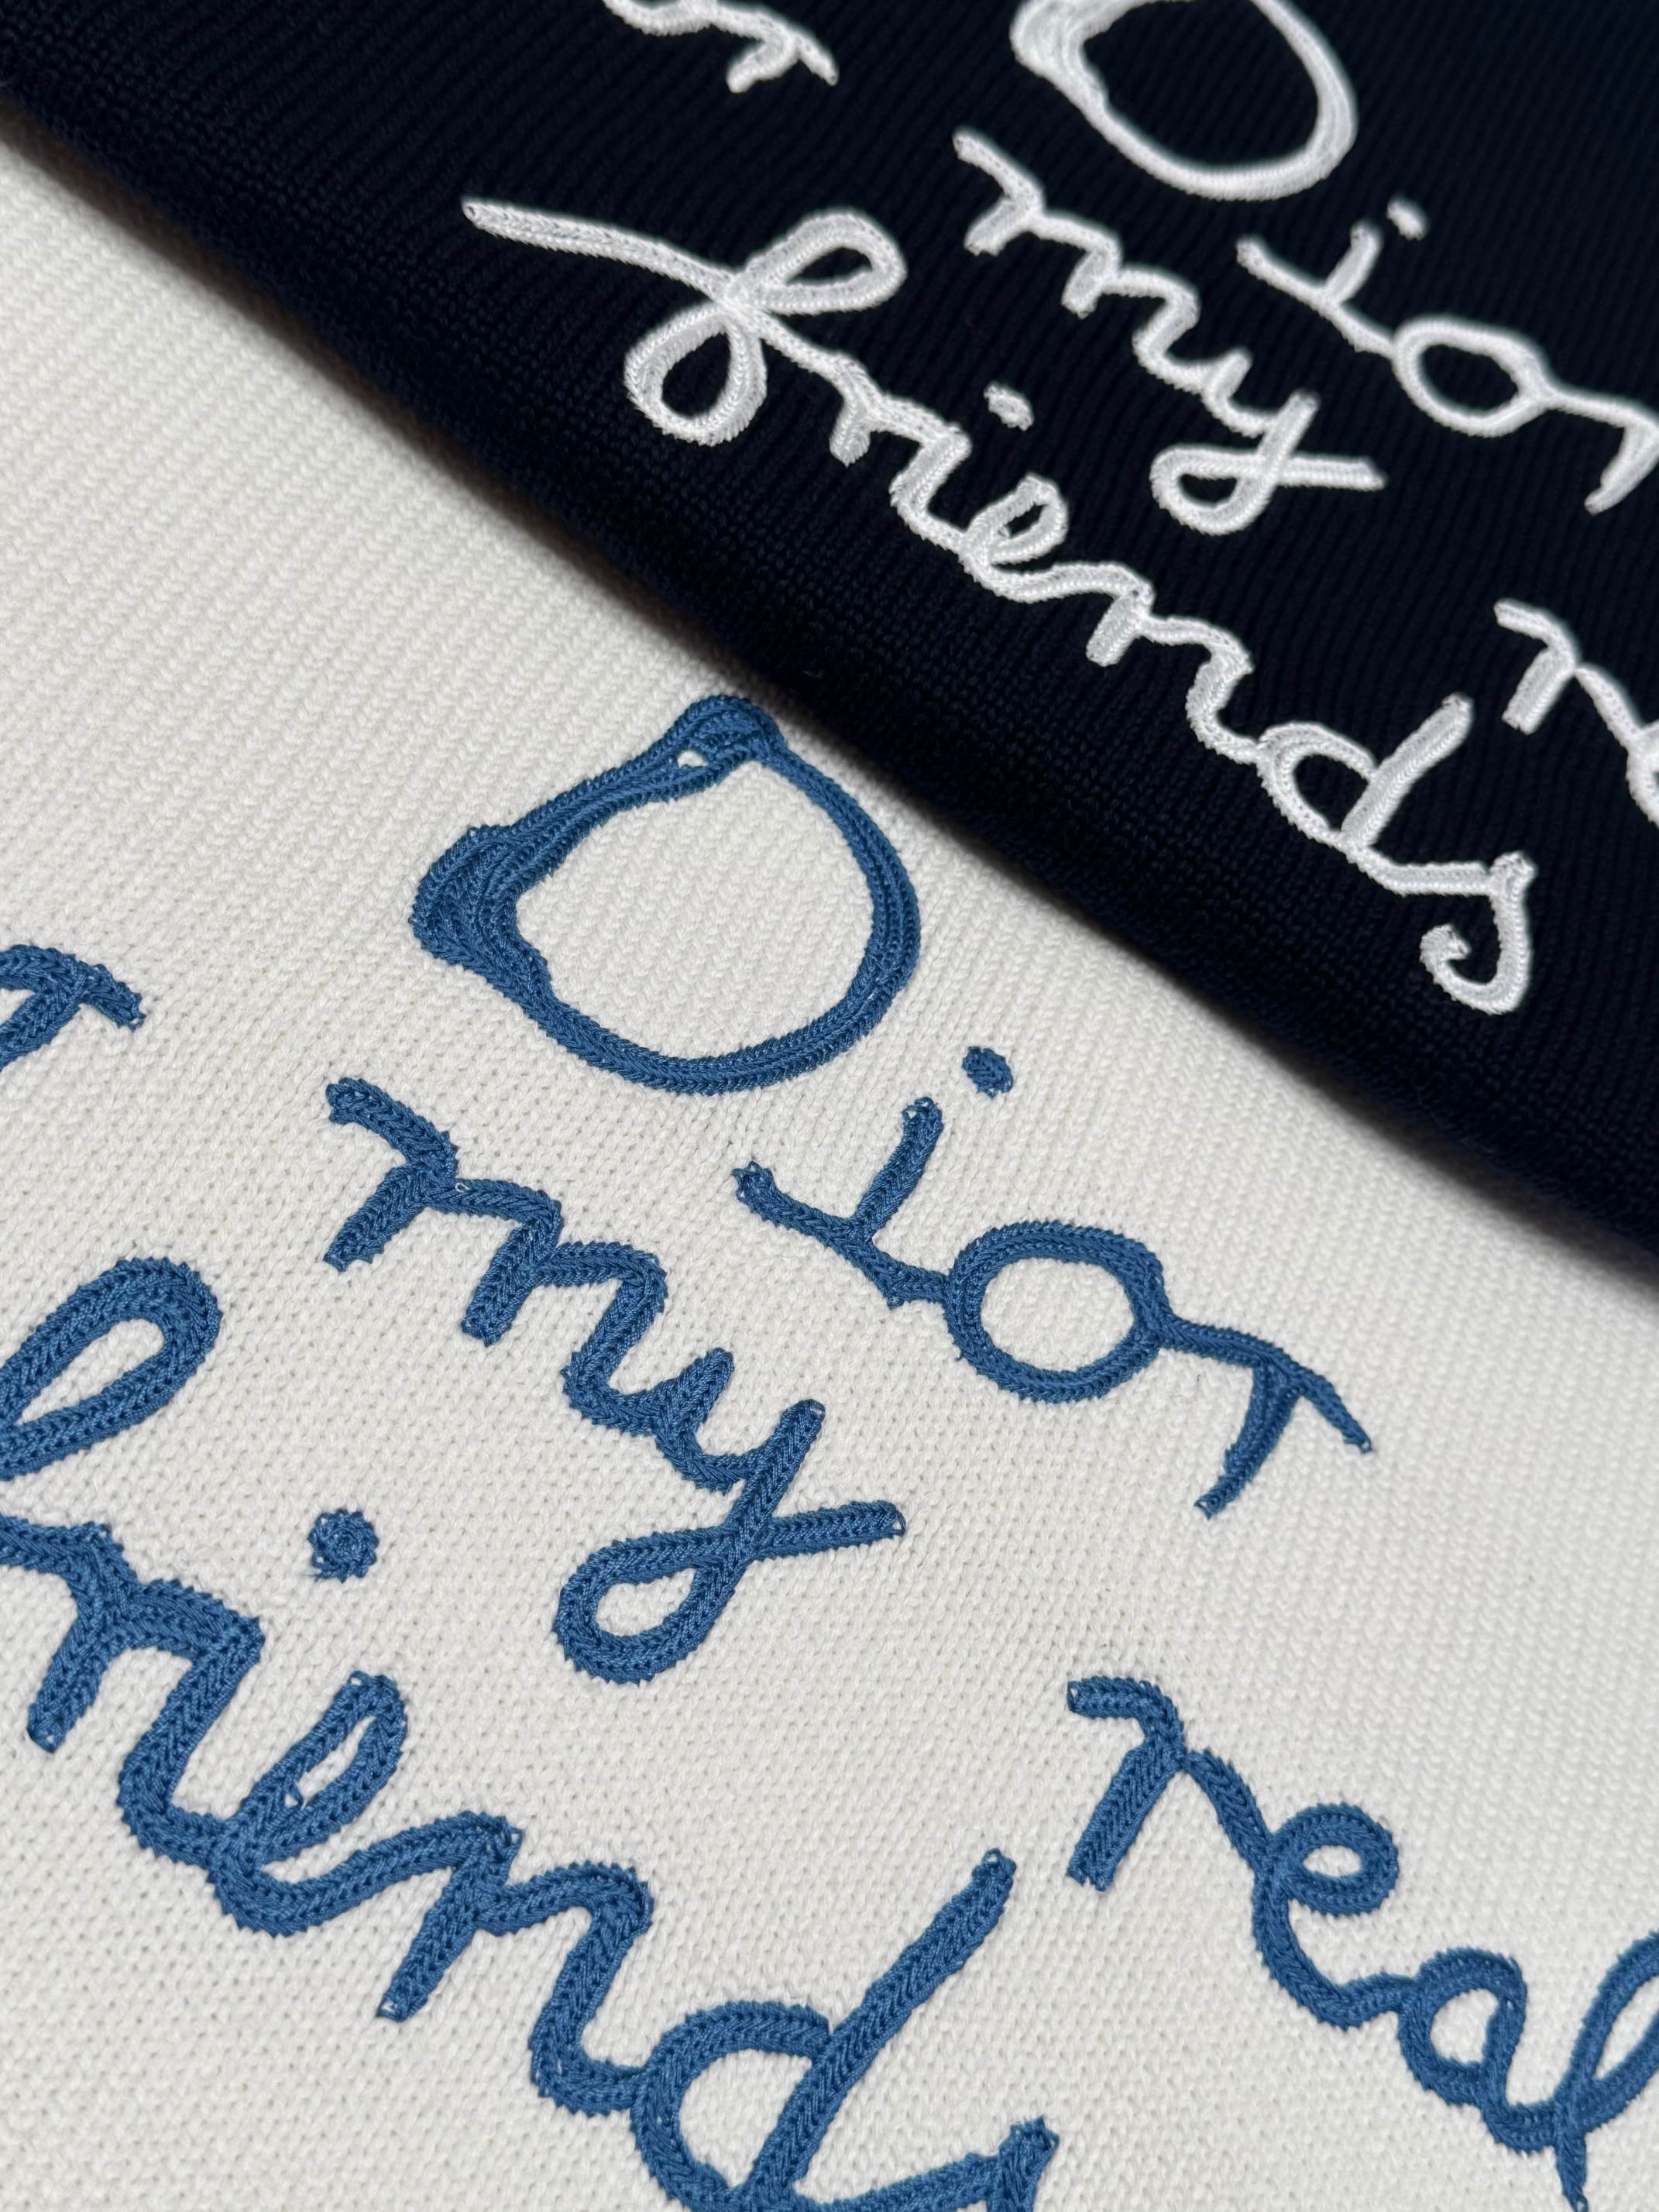 Dior
my
friends
Dior
my
friends
real